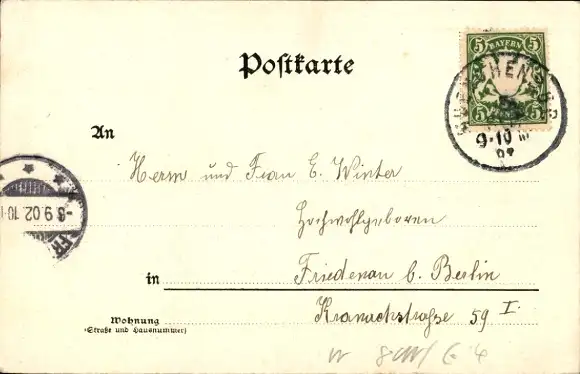 Postkarte
5 BAYERN 5
9-10
An
Herrn und Frau E. Winter
Hochwohlgeboren
in Friedenau b. Berlin
Wohnung Kranachstraße 59 I.
(Straße und Hausnummer)
-8 9.02.10-